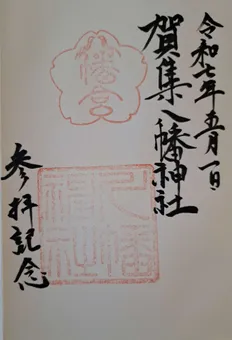 令和七年五月一日
賀集八幡神社
八幡宮
八幡神社
参拝記念